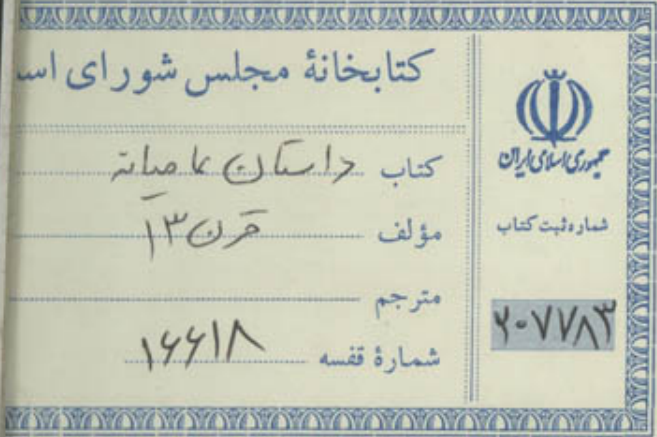 کتابخانهٔ مجلس شورای اسـ
جمهوری اسلامی ایران
کتاب داستان عامیانه
شماره ثبت کتاب
مؤلف قرن ۱۳
مترجم
۲۰۷۷۸۳
شمارهٔ قفسه ۱۶۶۱۸